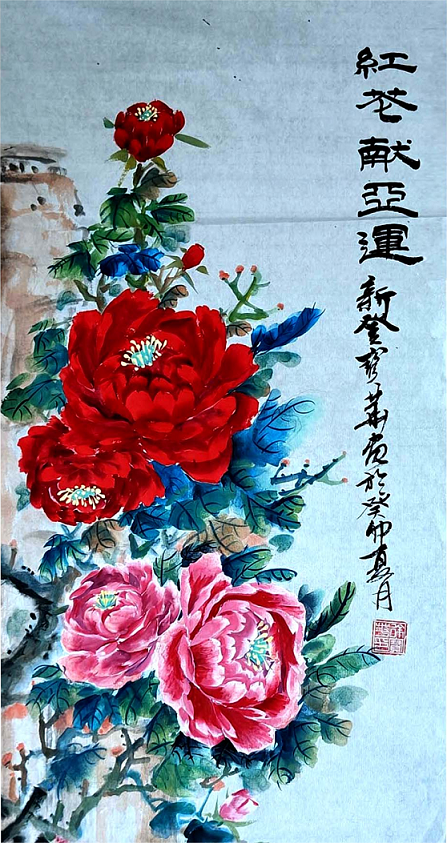 紅花献亞運
新登寶華畫於癸卯夏月